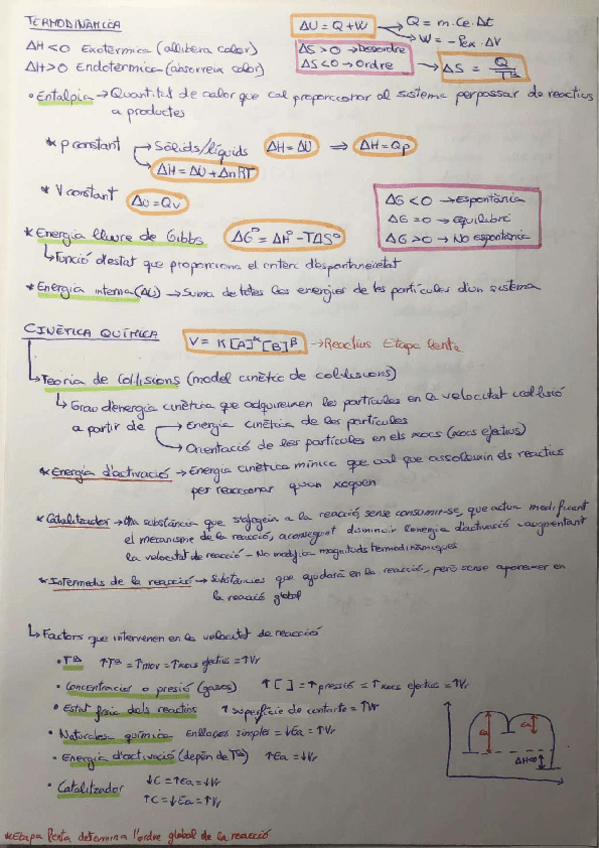 TERMODINÀMICA
ΔU = Q + W → Q = m · Ce · Δt
→ W = - Pex · ΔV
ΔH < 0 Exotèrmica (allibera calor)
ΔH > 0 Endotèrmica (absorveix calor)
ΔS > 0 → Desordre
ΔS < 0 → Ordre
→ ΔS = Q / Tª
• Entalpia → Quantitat de calor que cal proporcionar al sistema per passar de reactius
a productes
* p constant → Sòlids/líquids ΔH = ΔU ⇒ ΔH = Qp
→ ΔH = ΔU + ΔnRT
* V constant ΔU = Qv
ΔG < 0 → Espontània
ΔG = 0 → equilibri
ΔG > 0 → No espontània
* Energia lliure de Gibbs ΔG° = ΔH° - TΔS°
↳ Funció d'estat que proporciona el criteri d'espontaneïtat
* Energia interna (ΔU) → Suma de totes les energies de les partícules d'un sistema
CINÈTICA QUÍMICA V = K [A]^α [B]^β → Reactius Etapa lenta
↳ Teoria de Col·lisions (model cinètic de col·lisions)
↳ Grau d'energia cinètica que adquireixen les partícules en la velocitat col·lisió
a partir de → Energia cinètica de les partícules
→ Orientació de les partícules en els xocs (xocs efectius)
* Energia d'activació → Energia cinètica mínima que cal que assoleixin els reactius
per reaccionar quan xoquen
* Catalitzador → Una substància que s'afegeix a la reacció sense consumir-se, que actua modificant
el mecanisme de la reacció, aconseguint disminuir l'energia d'activació i augmentant
la velocitat de reacció - No modifica magnituds termodinàmiques
* Intermedis de la reacció → Substàncies que ajudarà en la reacció, però sense aparèixer en
la reacció global
↳ Factors que intervenen en la velocitat de reacció
• Tª ↑Tª = ↑mov = ↑xocs efectius = ↑Vr
• Concentració o pressió (gasos) ↑[ ] = ↑pressió = ↑xocs efectius = ↑Vr
• Estat físic dels reactius ↑ superfície de contacte = ↑Vr
• Naturalesa química Enllaços simples = ↓Ea = ↑Vr
• Energia d'activació (depèn de Tª) ↑Ea = ↓Vr
• Catalitzador ↓C = ↑Ea = ↓Vr
↑C = ↓Ea = ↑Vr
Ea
Ea
ΔH<0
* Etapa lenta determina l'ordre global de la reacció